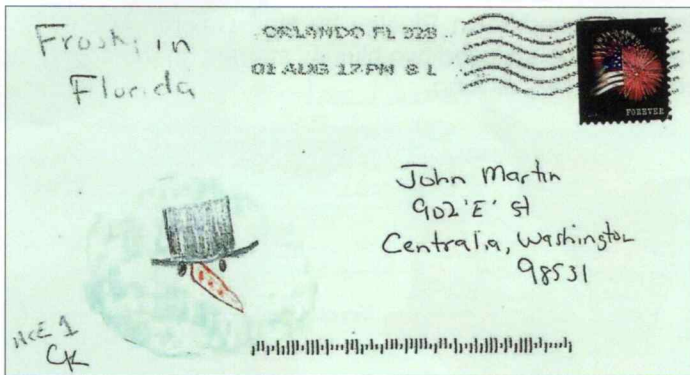 Frosty in
Florida
ORLANDO FL 328
01 AUG 17 PM 8 L
FOREVER
John Martin
902 'E' St
Centralia, Washington
98531
CK